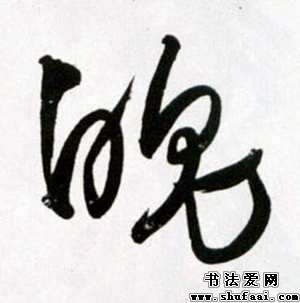 魄
书法爱网
www.shufaai.com